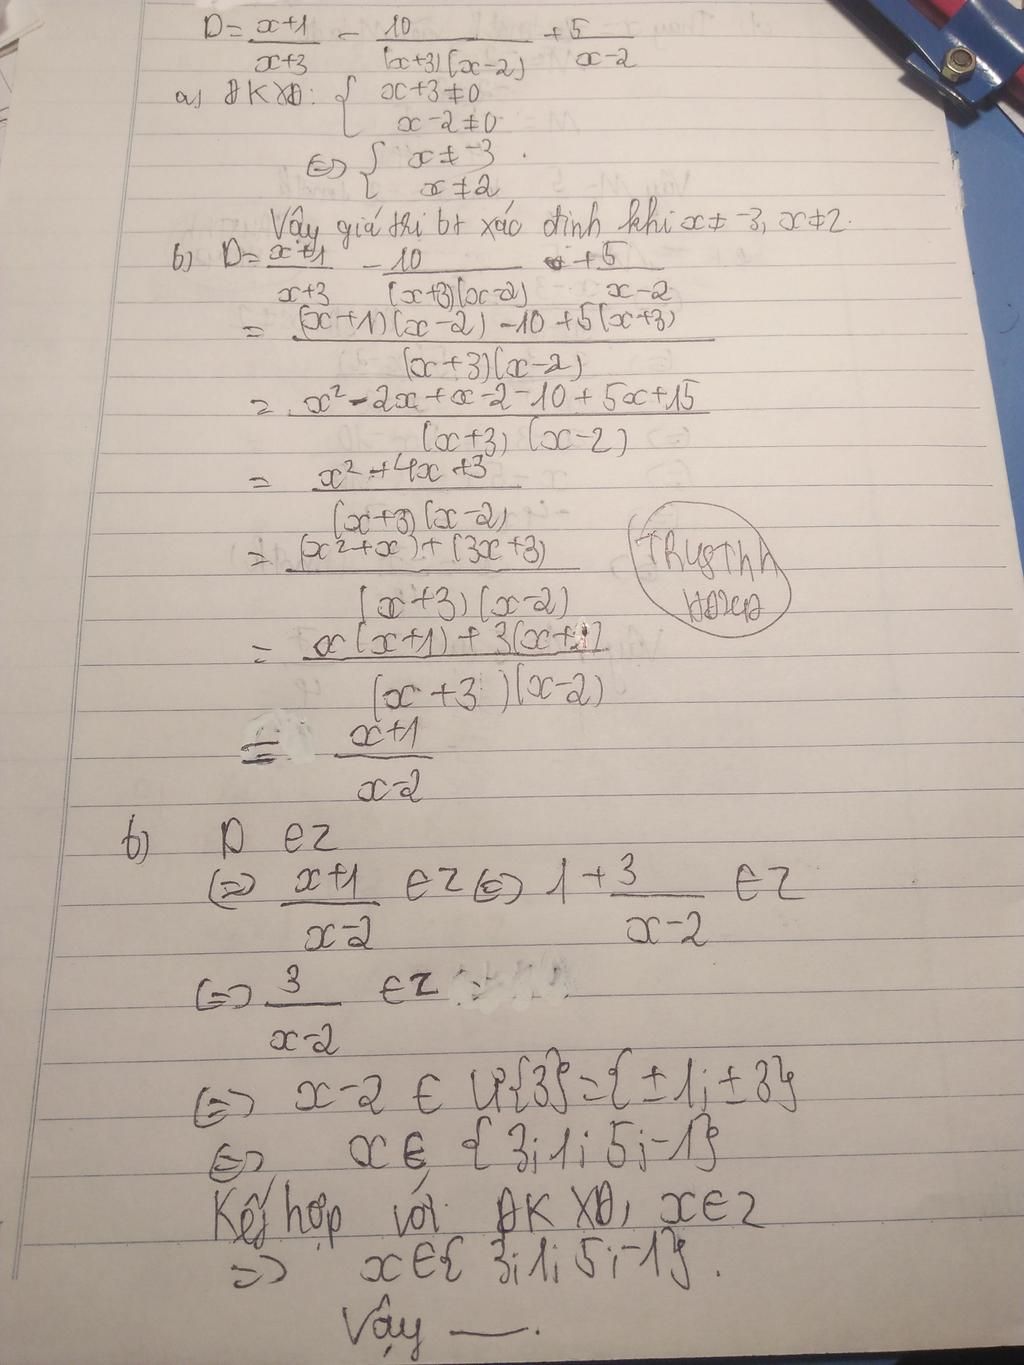 D = x+1/x+3 - 10/(x+3)(x-2) + 5/x-2
a) ĐKXĐ: { x+3≠0
x-2≠0
<=> { x≠-3
x≠2
Vậy giá trị bt xác định khi x≠-3, x≠2.
b) D = x+1/x+3 - 10/(x+3)(x-2) + 5/x-2
= (x+1)(x-2) - 10 + 5(x+3)/(x+3)(x-2)
= x² - 2x + x - 2 - 10 + 5x + 15/(x+3)(x-2)
= x² + 4x + 3/(x+3)(x-2)
= (x² + x) + (3x+3)/(x+3)(x-2)
= x(x+1) + 3(x+1)/(x+3)(x-2)
= x+1/x-2
b) D ∈ Z
<=> x+1/x-2 ∈ Z <=> 1 + 3/x-2 ∈ Z
<=> 3/x-2 ∈ Z
<=> x-2 ∈ Ư{3} = {±1; ±3}
<=> x ∈ {3; 1; 5; -1}
Kết hợp với ĐKXĐ, x ∈ Z
=> x ∈ {3; 1; 5; -1}.
Vậy —.